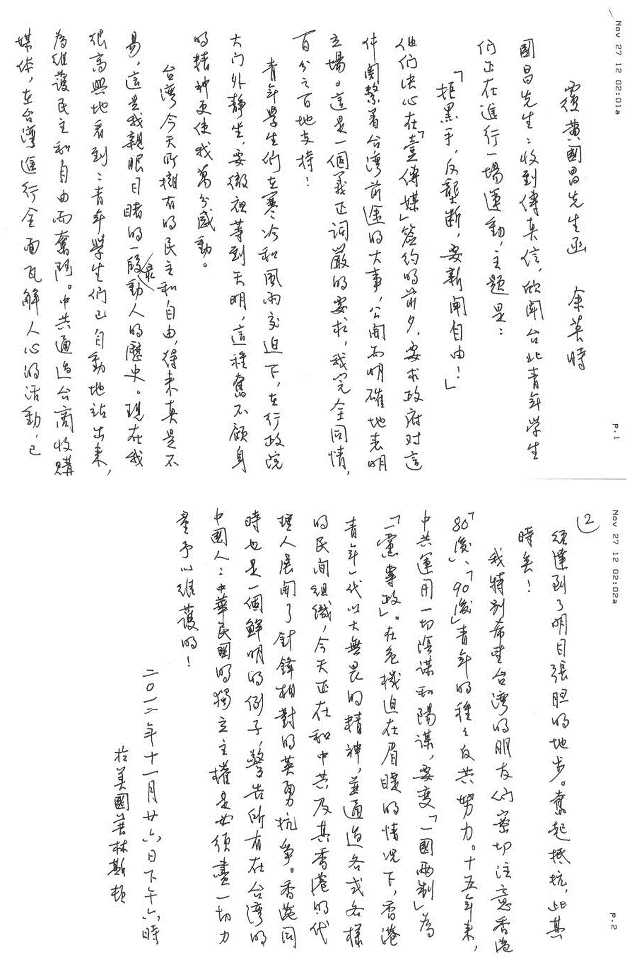 Nov 27 12 02:01a
p.1
覆黃國昌先生函　余英時
國昌先生：收到傳真信，欣聞台北青年學生
们正在進行一場運動，主題是：
「拒黑手，反壟断，要新聞自由！」
他们决心在「壹傳媒」簽約的前夕，要求政府对這
件関繫着台湾前途的大事，公開而明確地表明
立場。這是一個義正詞嚴的要求，我完全同情，
百分之百地支持！
青年學生們在寒冷和風雨交迫下，在行政院
大门外静坐，要徹夜等到天明，這種奮不顧身
的精神更使我萬分感動。
台湾今天所擁有的民主和自由，得来真是不
易，這是我親眼目睹的一段最動人的歷史。現在我
很高興地看到：青年學生们已自動地站出来，
為維護民主和自由而奮鬥。中共通過台商收購
媒体，在台湾進行全面瓦解人心的活動，已
Nov 27 12 02:02a
p.2
②
達到了明目張胆的地步。奮起抵抗，此其
時矣！
我特别希望台湾的朋友们密切注意香港
「80後」、「90後」青年的種々反共努力。十五年来，
中共運用一切陰谋和陽谋，要变「一國两制」為
「一黨專政」。在危機迫在眉睫的情况下，香港
青年一代以大無畏的精神，並通過各式各樣
的民间組織，今天正在和中共及其香港的代
理人展開了針鋒相對的英勇抗争。香港同
時也是一個鮮明的例子，警告所有在台湾的
中國人：中華民國的獨立主權是必須盡一切力
量予以維護的！
二〇一二年十一月廿六日下午六時
於美國普林斯頓